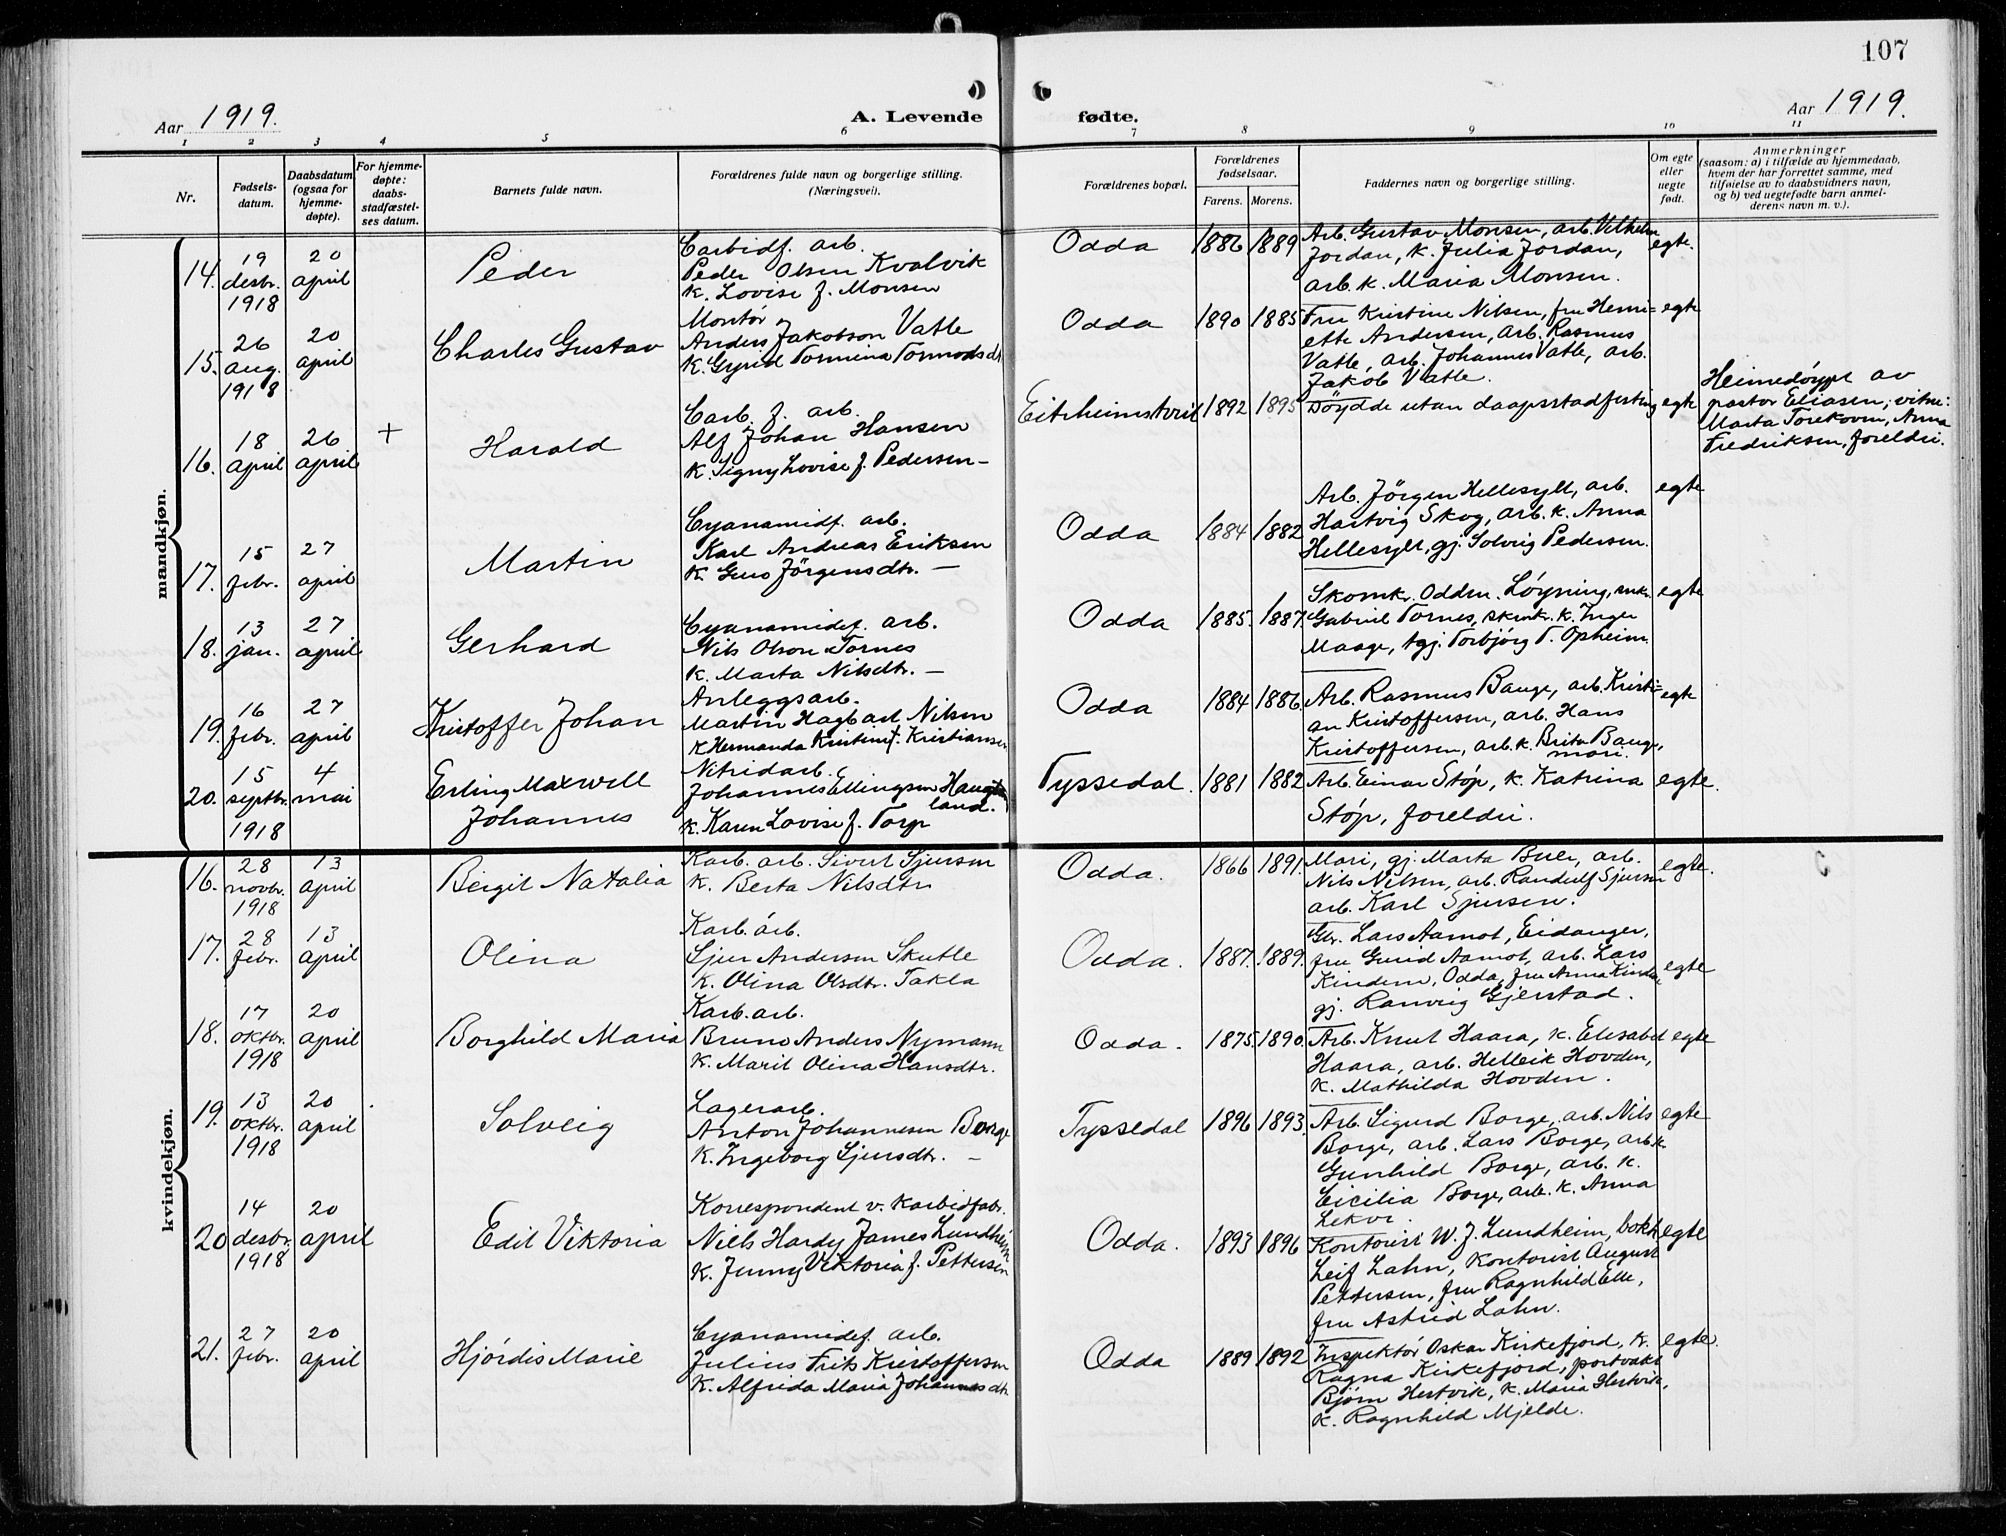 107
Aar 1919.
A. Levende
fødte.
Aar 1919.
1 2 3 4 5 6 7 8 9 10 11
Nr.
Fødsels-
datum.
Daabsdatum
(ogsaa for
hjemme-
døpte).
For hjemme-
døpte:
daabs-
stadfæstel-
ses datum.
Barnets fulde navn.
Forældrenes fulde navn og borgerlige stilling.
(Næringsvei).
Forældrenes bopæl.
Forældrenes
fødselsaar.
Farens. Morens.
Faddernes navn og borgerlige stilling.
Om egte
eller
uegte
født.
Anmerkninger
(saasom: a) i tilfælde av hjemmedaab,
hvem der har forrettet samme, med
tilføielse av to daabsvidners navn,
og b) ved uegtefødte barn anmel-
derens navn m. v.).
mandkjøn.
14.
19
desbr.
1918
20
april
Peder
Carbidf. arb.
Peder Olsen Kvalvik
k. Lovise f. Monsen
Odda
1886 1889
Arb. Gustav Monsen, arb. Vilhelm
Jordan, k. Julia Jordan,
arb. k. Maria Monsen.
egte.
15.
26
aug.
1918
20
april
Charles Gustav
Montør
Anders Jakobson Vatle
k. Gyrid Tormena Tormodsdt
Odda
1890 1885
Fru Kristine Nilsen, fru Henri=
ette Andersen, arb. Rasmus
Vatle, arb. Johannes Vatle, arb.
Jakob Vatle.
egte
16.
18
april
26
april
+
Harald
Carb. f. arb.
Alf Johan Hansen
k. Signy Lovise f. Pedersen –
Eitrheimstveit
1892 1895
Døydde utan daapsstadfesting
egte
Heimedøypt av
pastor Eliasen; vitne:
Marta Torekoven, Anna
Fredriksen, foreldri.
17.
15
febr.
27
april
Martin
Cyanamidf. arb.
Karl Andreas Eriksen
k. Guro Jörgensdtr. –
Odda
1884 1882
Arb. Jörgen Hellesylt, arb.
Hartvig Skog, arb. k. Anna
Hellesylt, gj. Solveig Pedersen.
egte
18.
13
jan.
27
april
Gerhard
Cyanamidf. arb.
Nils Olson Tornes
k. Marta Nilsdtr. –
Odda
1885. 1887.
Skomkr. Oddm. Løyning, snkr.
Gabriel Tornes, skmkr. k. Inger
Maage, tgj. Torbjörg T. Opheim.
egte
19.
16
febr.
27
april
Kristoffer Johan
Anleggsarb.
Martin Hagbart Nilsen
k. Hermanda Kristine f. Kristiansen
Odda
1884 1886.
Arb. Rasmus Bauge, arb. Kristi=
an Kristoffersen, arb. Hans
Kristoffersen, arb. k. Brita Bauge,
mori.
egte
20.
15
septbr.
1918
4
mai
Erling Maxwell
Johannes
Nitridarb.
Johannes Ellingsen Haugtan
land.
k. Karen Lovise f. Torp
Tyssedal.
1881 1882
Arb. Einar Støp, k. Katrina
Støp, foreldri.
egte.
kvindekjøn.
16.
28
novbr.
1918
13
april
Bergit Natalia
Karb. arb. Sivert Sjursen
k. Berta Nilsdtr
Odda.
1866 1891.
Mari, gj. Marta Buer, arb.
Nils Nilsen, arb. Randulf Sjursen
arb. Karl Sjursen.
egte.
17.
28
febr.
13
april
Olina
Karb. arb.
Sjur Andersen Skutle
k. Olina Olsdtr. Takla
Odda.
1887. 1889.
Gbr. Lars Aamot, Eidanger,
fru Gurid Aamot, arb. Lars
Kindem, Odda, fru Anna Kindem
gj. Ranveig Gjerstad.
egte
18.
17
oktbr.
1918
20
april
Borghild Maria
Karb. arb.
Bruno Anders Nymann
k. Marit Olina Hansdtr.
Odda.
1875. 1890.
Arb. Knut Haara, k. Elisabet
Haara, arb. Helleik Hovden,
k. Mathilda Hovden.
egte
19.
13
oktbr.
1918
20
april
Solveig
Lagerarb.
Anton Johannesen Borge
k. Ingeborg Sjursdtr. –
Tyssedal
1896 1893.
Arb. Sigurd Borge, arb. Nils
Borge, arb. Lars Borge, arb. k.
Gunhild Borge, arb. k.
Cicilia Borge, arb. k. Anna
Lekve.
egte
20
14
desbr.
1918
20
april
Edit Viktoria
Korrespondent v. Karbidfabr.
Niels Hardy James Lundheim
k. Jenny Viktoria f. Pettersen
Odda.
1893 1896
Kontorist W. J. Lundheim, bokh.
Leif Lahn, kontorist August
Pettersen, fru Ragnhild Elle,
fru Astrid Lahn.
egte
21.
27
febr.
20
april
Hjördis Marie
Cyanamidf. arb.
Julius Frits Kristoffersen
k. Alfrida Maria Johannesdtr
Odda
1889 1892
Inspektör Oskar Kirkefjord, k.
Ragna Kirkefjord, portvakt
Bjørn Hestvik, k. Maria Hestvik,
k. Ragnhild Mjelde.
egte.